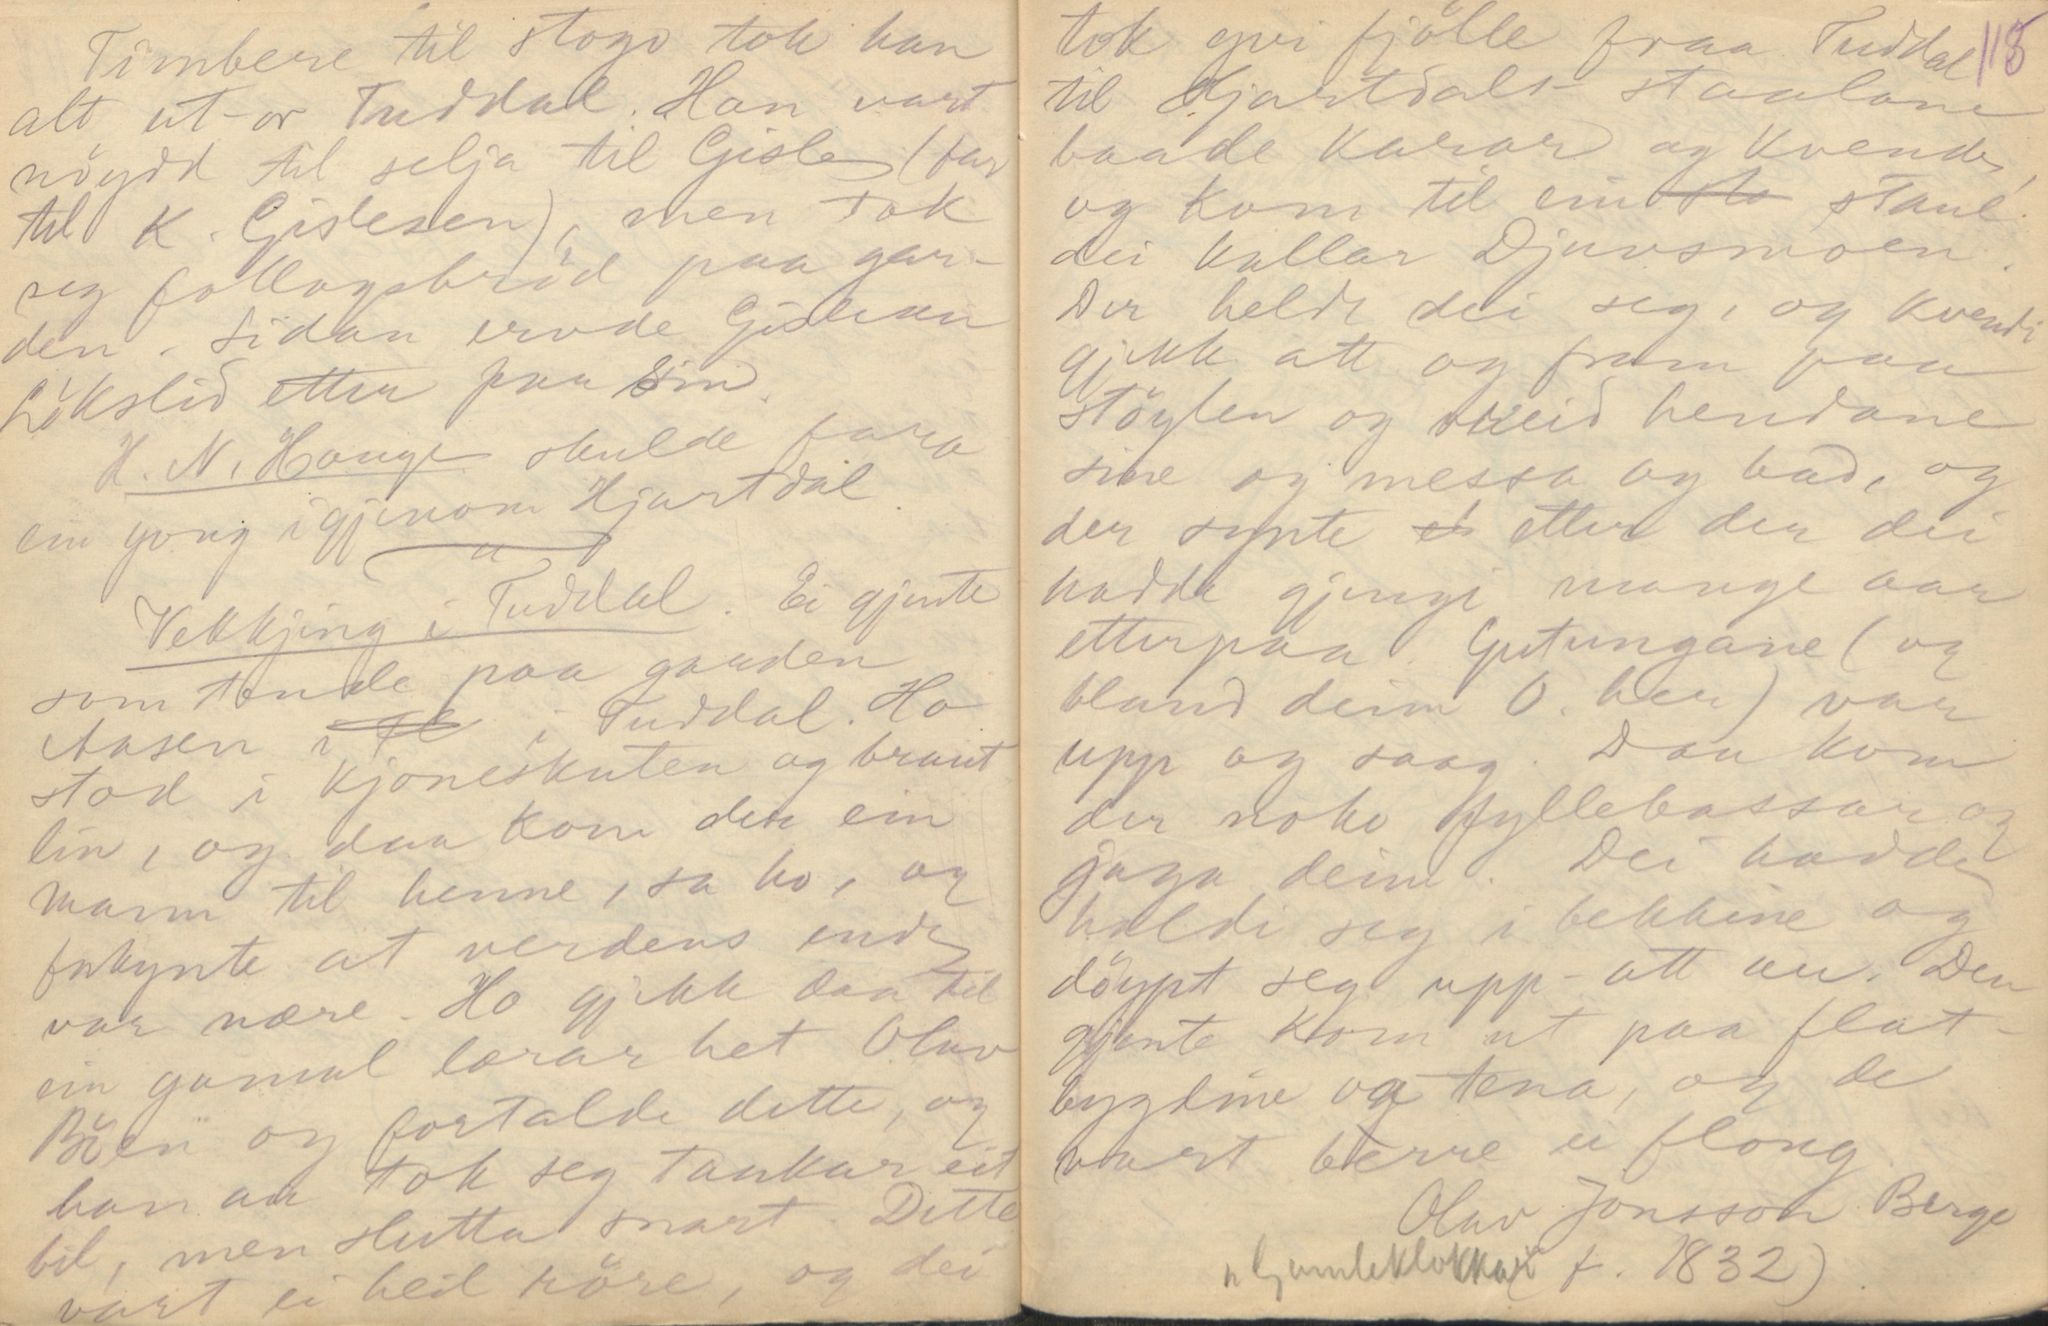 Timbere til stogo tok han
alt ut-or Tuddal. Han vart
nöydd til selja til Gisle (far
til K. Gislesen), men tok
seg follogsbröd paa gar-
den. Sidan ervde Gislean
Lökslid etter paa sin.
H. N. Hauge skulde fara
ein gong igjenom Hjartdal.
Vekkjing i Tuddal. Ei gjente
som tende paa garden
Aasen i i Tuddal. Ho
stod i kjoneskuten og braut
lin, og daa kom der ein
mann til henne, sa ho, og
fokynte at verdens ende
var nære. Ho gjekk daa til
ein gamal lærar het Olav
Böen og fortalde dette, og
han au tok seg tankar eit
bil, men slutta snart. Dette
vart ei heil röre, og dei
118
tok yvi fjölle fraa Tuddal
til Hjartdals-staulane
baade karar og kvende,
og kom til ein sto staul
dei kallar Djuvsmoen.
Der heldt dei seg, og kvendi
gjekk att og fram paa
stöylen og vreid hendane
sine og messa og bad, og
der synte etter der dei
hadde gjengi mange aar
etterpaa. Gutungane (og
bland deim O. her) var
upp og saag. Daa kom
der noko fyllebassar og
jaga deim. Dei hadde
haldi seg i bekkine og
döypt seg upp-att au. Den
gjente kom ut paa flat-
bygdine og tena, og de
vart berre ei flong.
Olav Jonsson Berge
"Gamleklokkar" (f. 1832).